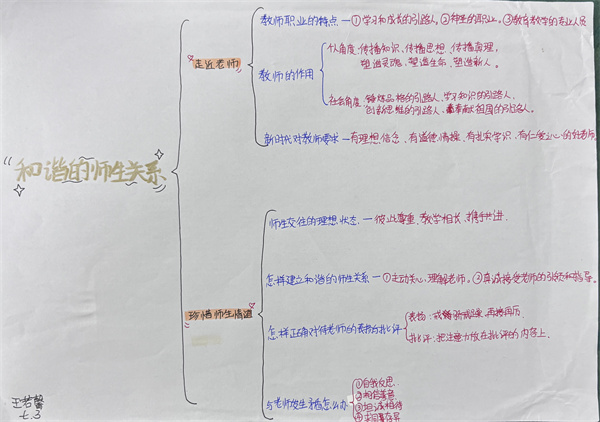 教师职业的特点 — ①学习和成长的引路人。②神圣的职业。③教育教学的专业人员
走近老师
教师的作用
个人角度:传播知识、传播思想、传播真理,
塑造灵魂、塑造生命、塑造新人。
社会角度:锤炼品格的引路人、学习知识的引路人、
创新思维的引路人、奉献祖国的引路人。
新时代对教师要求 — 有理想信念、有道德情操、有扎实学识、有仁爱之心的好老师
和谐的师生关系
师生交往的理想状态 — 彼此尊重、教学相长、携手共进.
怎样建立和谐的师生关系 — ①主动关心、理解老师。②真诚接受老师的引领和指导。
珍惜师生情谊
怎样正确对待老师的表扬与批评
表扬:
批评:把注意力放在批评的内容上.
与老师发生矛盾怎么办
①自我反思.
②相信善意
③坦诚相待
④求同存异
七.3